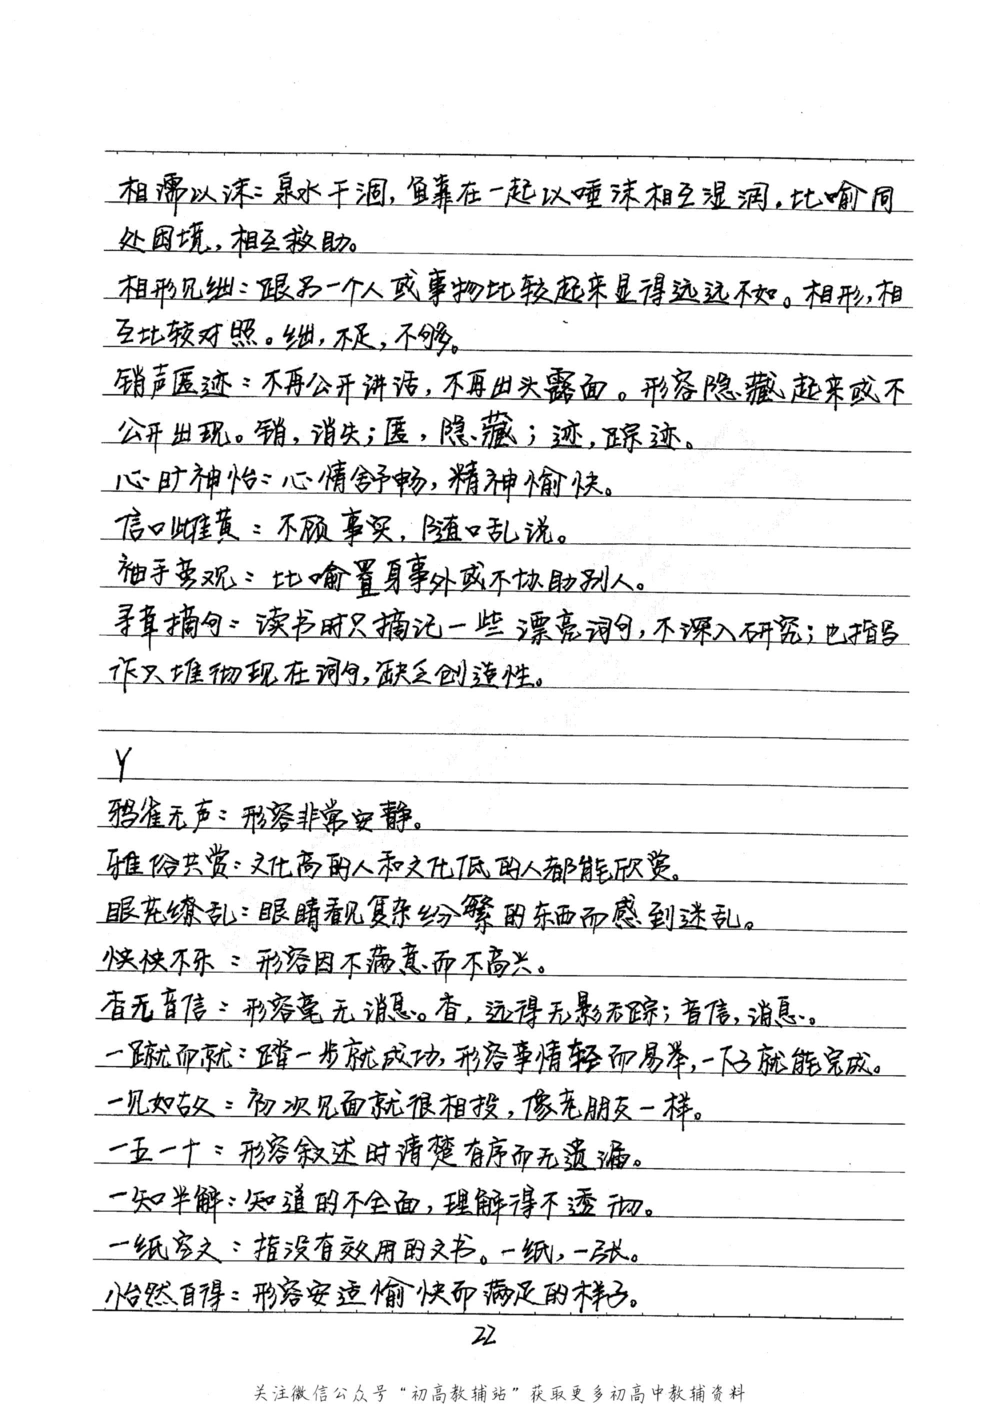 相濡以沫：泉水干涸，鱼靠在一起以唾沫相互湿润。比喻同
处困境，相互救助。
相形见绌：跟另一个人或事物比较起来显得远远不如。相形，相
互比较对照。绌，不足，不够。
销声匿迹：不再公开讲话，不再出头露面。形容隐藏起来或不
公开出现。销，消失；匿，隐藏；迹，踪迹。
心旷神怡：心情舒畅，精神愉快。
信口雌黄：不顾事实，随口乱说。
袖手旁观：比喻置身事外或不协助别人。
寻章摘句：读书时只摘记一些漂亮词句，不深入研究；也指写
作只堆砌现在词句，缺乏创造性。
Y
鸦雀无声：形容非常安静。
雅俗共赏：文化高的人和文化低的人都能欣赏。
眼花缭乱：眼睛看见复杂纷繁的东西而感到迷乱。
怏怏不乐：形容因不满意而不高兴。
杳无音信：形容毫无消息。杳，远得无影无踪；音信，消息。
一蹴而就：踏一步就成功，形容事情轻而易举，一下子就能完成。
一见如故：初次见面就很相投，像老朋友一样。
一五一十：形容叙述时清楚有序而无遗漏。
一知半解：知道的不全面，理解得不透彻。
一纸空文：指没有效用的文书。一纸，一张。
怡然自得：形容安适愉快而满足的样子。
22
关注微信公众号“初高教辅站”获取更多初高中教辅资料